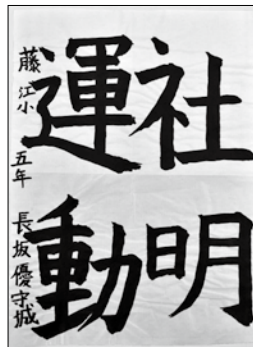 社明
運動
藤江小 五年 長坂優守城